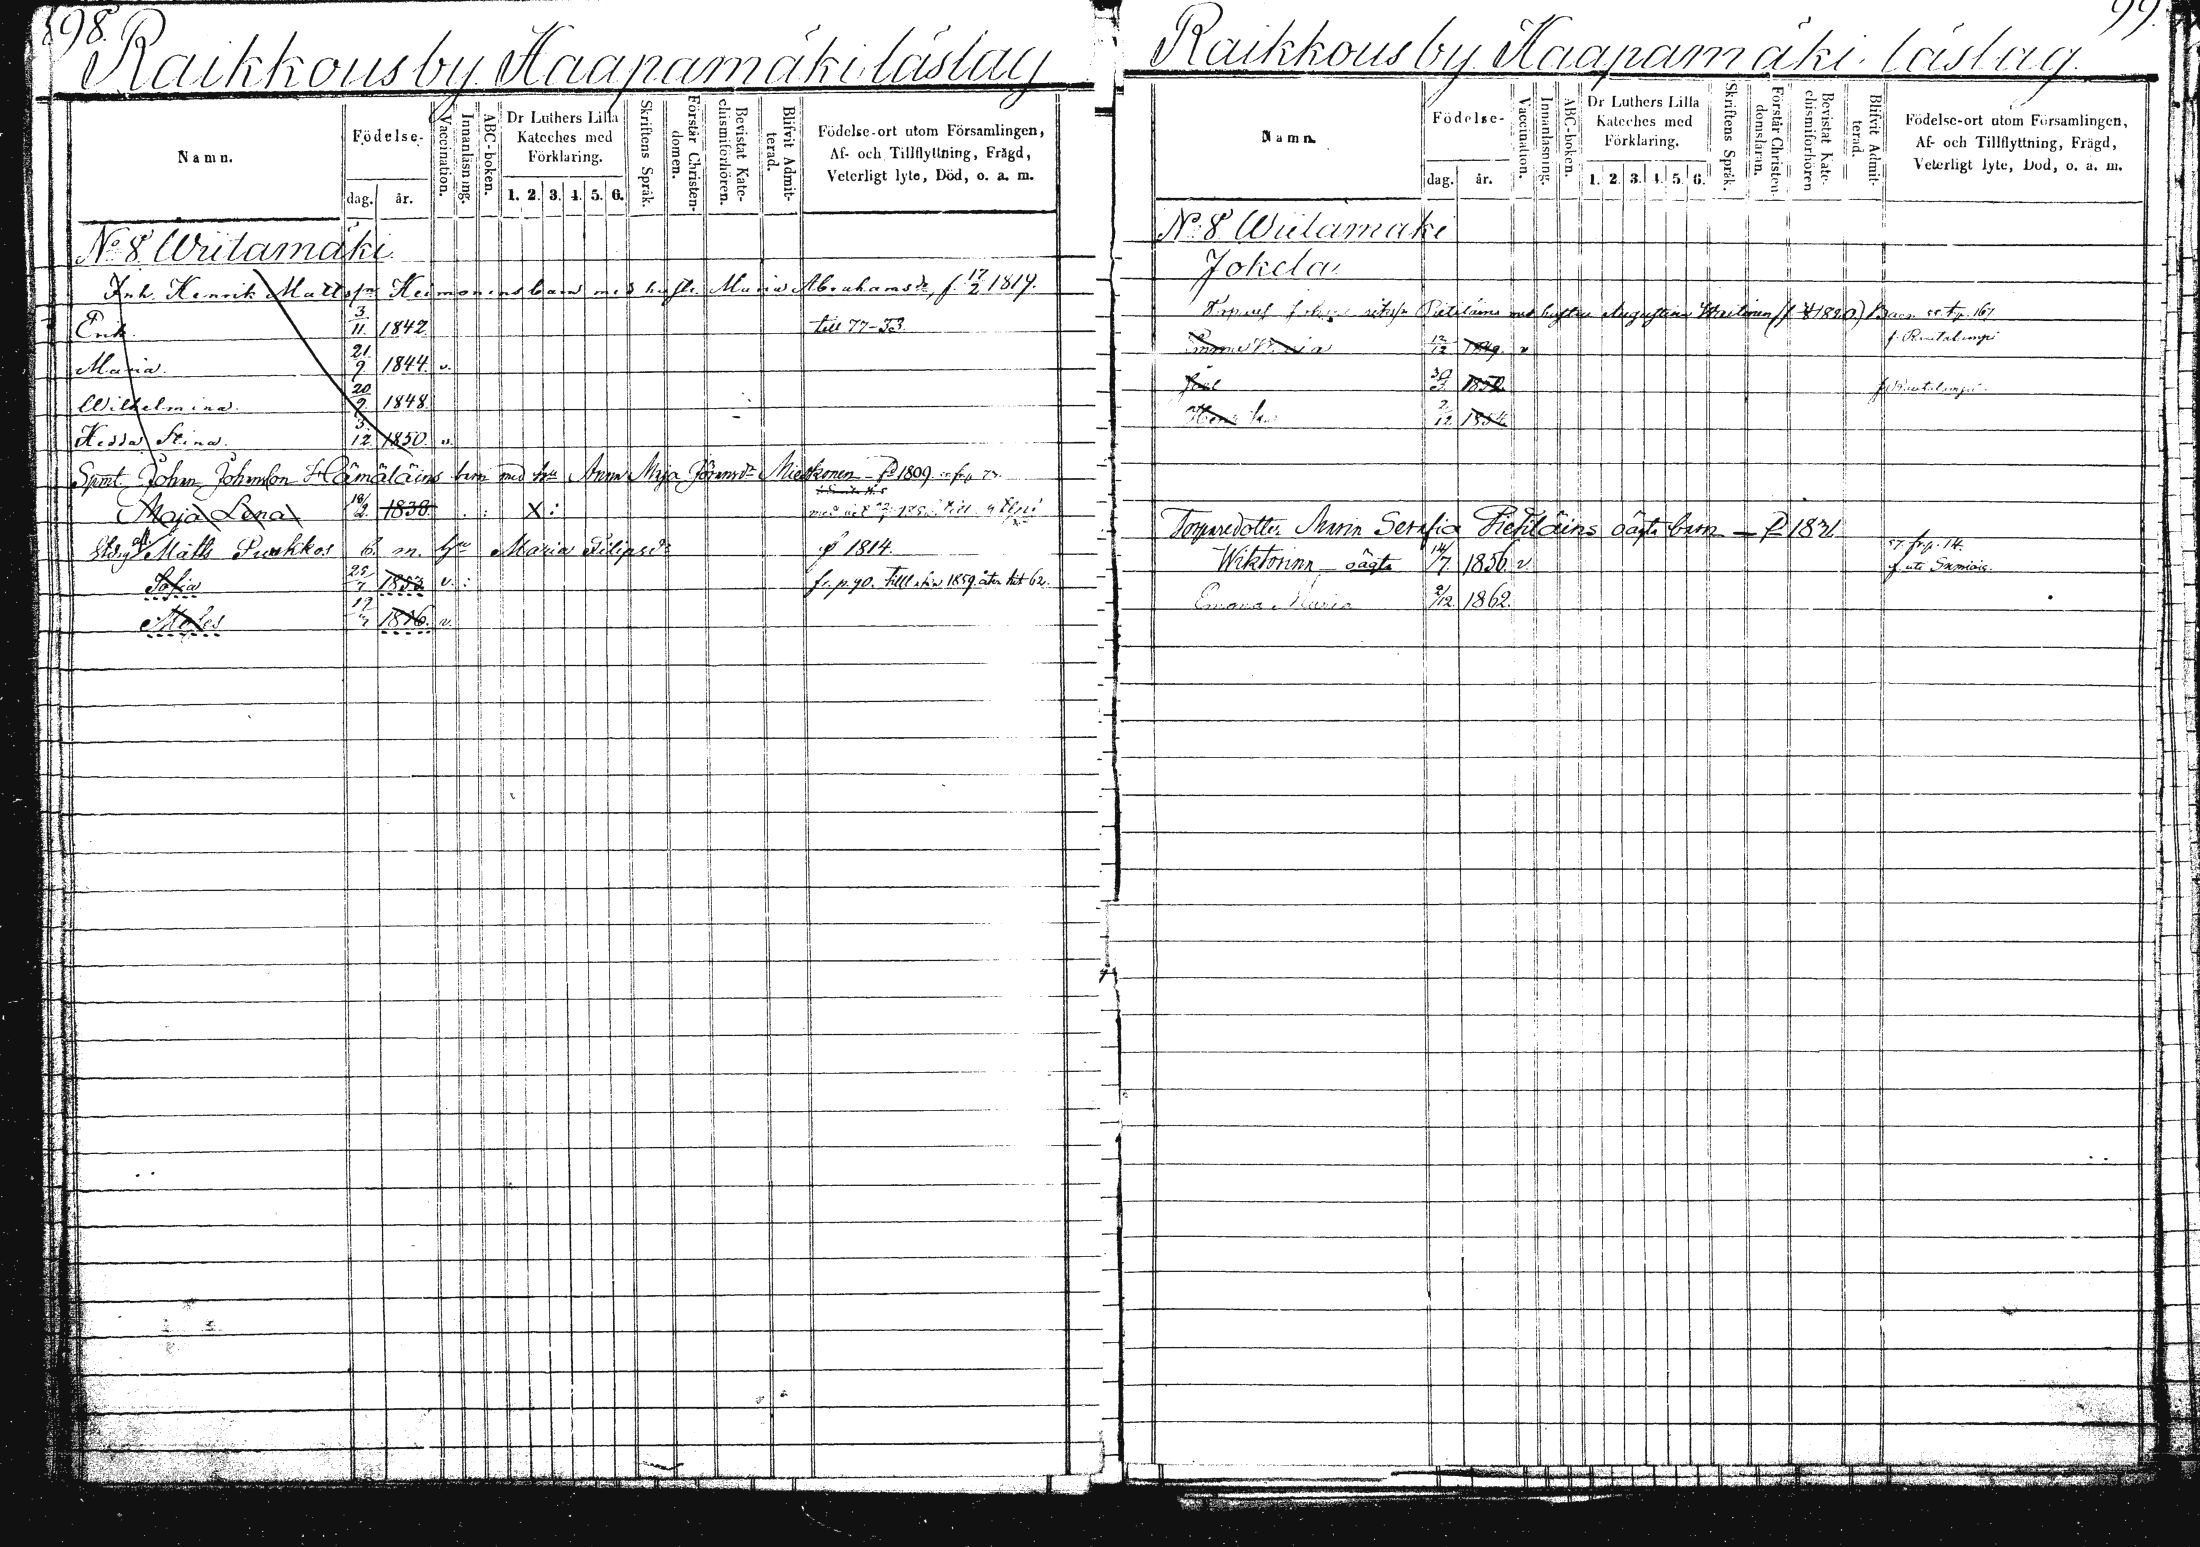 98.
Raikkousby Haapamäki läslag
Namn.
Födelse-
dag. år.
Vaccination.
Innanläsning.
ABC-boken.
Dr Luthers Lilla
Kateches med
Förklaring.
1. 2. 3. 4. 5. 6.
Skriftens Språk.
Förstår Christen-
domen.
Bevistat Kate-
chismiförhören.
Blifvit Admit-
terad.
Födelse-ort utom Församlingen,
Af- och Tillflyttning, Frägd,
Veterligt lyte, Död, o. a. m.
No 8 Wiitamäki.
Inh. Henrik Mattsn Heimonens barn med hustr. Maria Abrahamsdr, f. 17/2 1819.
Erik 3/11. 1842 till 77-53.
Maria. 21/9 1844. v.
Wilhelmina. 20/9. 1848.
Hedda Stina. 3/12 1850. v.
Spmt. Johan Johansson Hämäläins barn med hu Anna Maja 1809
Maja Lena 18/2 1838
Matts Puukkos b. m. hu Maria Filipsdr f 1814.
Sofia 25/7 1853 v. : fr. p. 90. 1859. åter hit 62.
Moses 19 v.
99.
Raikkousby Haapamäki läslag.
Namn.
Födelse-
dag. år.
Vaccination.
Innanläsning.
ABC-boken.
Dr Luthers Lilla
Kateches med
Förklaring.
1. 2. 3. 4. 5. 6.
Skriftens Språk.
Förstår Christen-
domsläran.
Bevistat Kate-
chismiförhören
Blifvit Admit-
terad.
Födelse-ort utom Församlingen,
Af- och Tillflyttning, Frägd,
Veterligt lyte, Död, o. a. m.
No 8 Wiitamäki
Jokela.
med hustru Augustina 1820) Barn fr. p. 161
Emma Maria 12/12 1849. v f. Rautalampi
30 1852 f. Rautalampi.
2/12 1854
Torparedotter Maria Serafia Pietiläins oägta barn — f 1831
Wiktorina — oägta 14/7. 1856 v. fr p. 14.
Emma Maria 2/12. 1862.